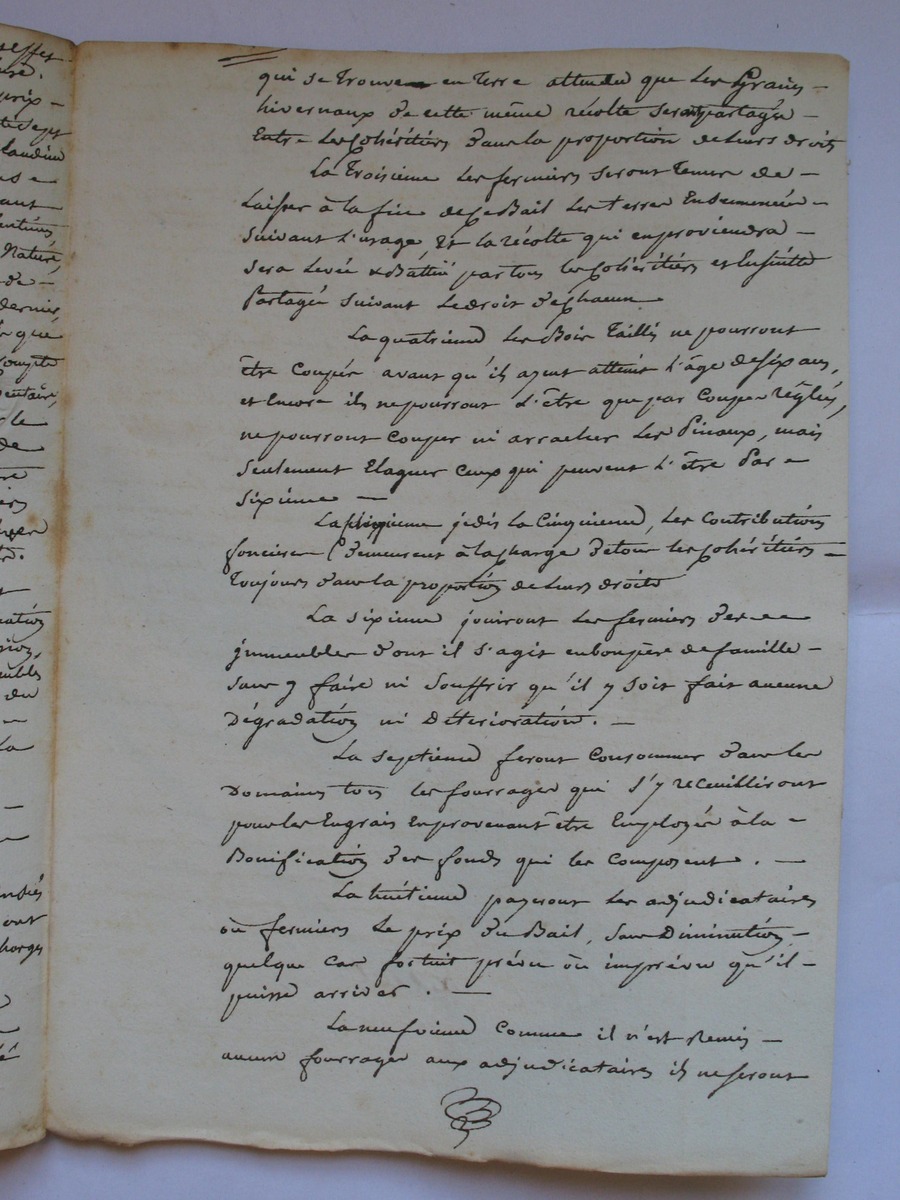 qui se trouve en terre attendu que les Grains
hivernaux de cette même récolte seront partagés
Entre les cohéritiers dans la proportion de leurs droits
La troisieme les fermiers seront tenus de
Laisser à la fin de ce Bail les terres Ensemencées
suivant l'usage, Et la récolte qui en proviendra
sera levée & Battue par tous les cohéritiers et Ensuitte
Partagée suivant le droit de chacun
La quatrieme les Bois taillis ne pourront
être coupés avant qu'ils ayent atteint l'âge de six ans,
et Encore ils ne pourront l'être que par coupes réglées,
ne pourront couper ni arracher les Pineaux, mais
seulement Elaguer ceux qui peuvent l'être Par
sixieme
La je dis la Cinquieme, les contributions
foncieres demeurent à la charge de tous les cohéritiers
toujours dans la proportion de leurs droits
La sixieme jouiront les fermiers des
jmmeubles dont il s'agit en bon père de famille
sans y faire ni souffrir qu'il y soit fait aucune
Dégradation ni déterioration.
La septieme feront consommer dans les
Domaines tous les fourrages qui s'y receuilliront
pour les Engrais en provenant être Employés à la
Bonification des fonds qui les composent.
La huitieme payeront les adjudicataires
ou fermiers le prix du Bail, sans Diminution,
quelque cas fortuit prévu ou imprévu qu'il
puisse arriver.
La neufvieme comme il n'est Remis
aucuns fourrages aux adjudicataires ils ne seront
qui